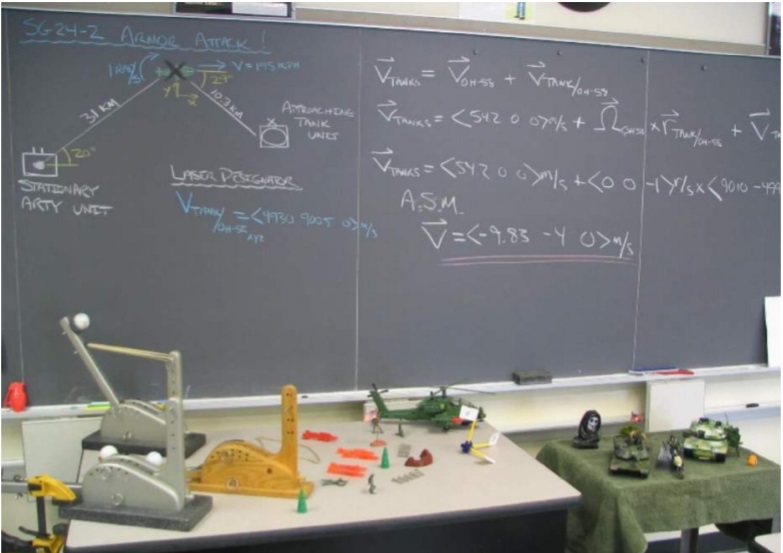 SG-24-2 ARMOR ATTACK!
1 RAD/S
V=195 KPH
25°
3.1 KM
10.3 KM
APPROACHING
TANK
UNIT
20°
STATIONARY
ARTY UNIT
LASER DESIGNATOR
V TANK/OH-58 xyz = <4930 9005 0> m/s
V TANKS = V OH-58 + V TANK/OH-58
V TANKS = <54.2 0 0> m/s + Ω OH-58 × r TANK/OH-58 + V
V TANKS = <54.2 0 0> m/s + <0 0 -1> r/s × <9010 -499
A.S.M.
V = <-9.83 -4 0> m/s